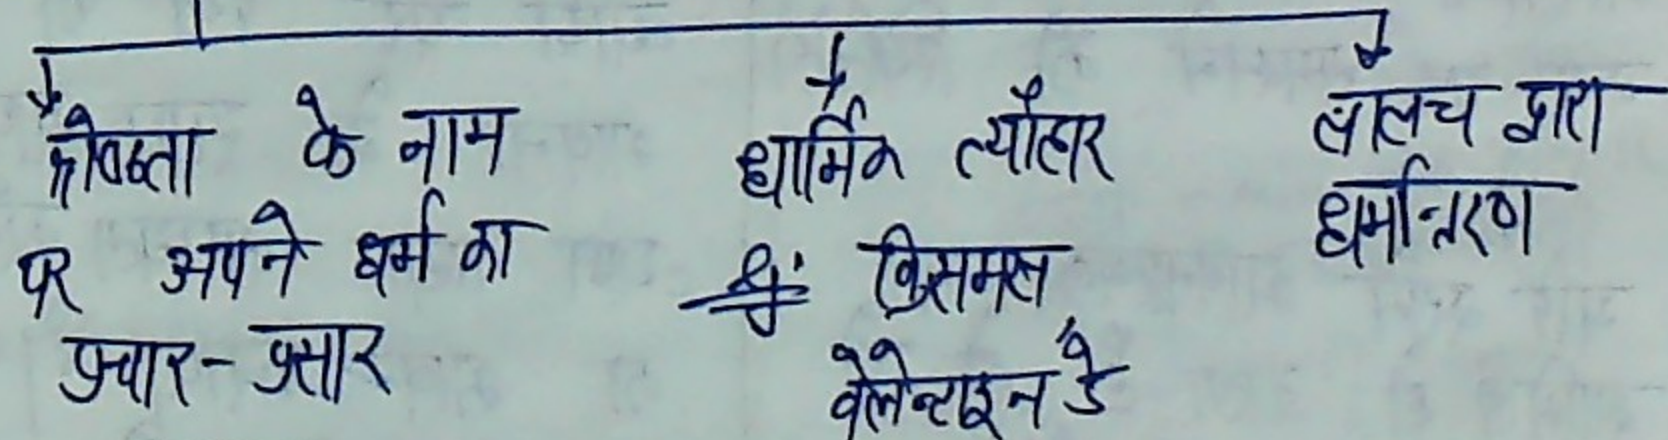 श्रेष्ठता के नाम
पर अपने धर्म का
प्रचार-प्रसार
धार्मिक त्यौहार
Eg: क्रिसमस,
वेलेन्टाइन डे
लालच द्वारा
धर्मान्तरण